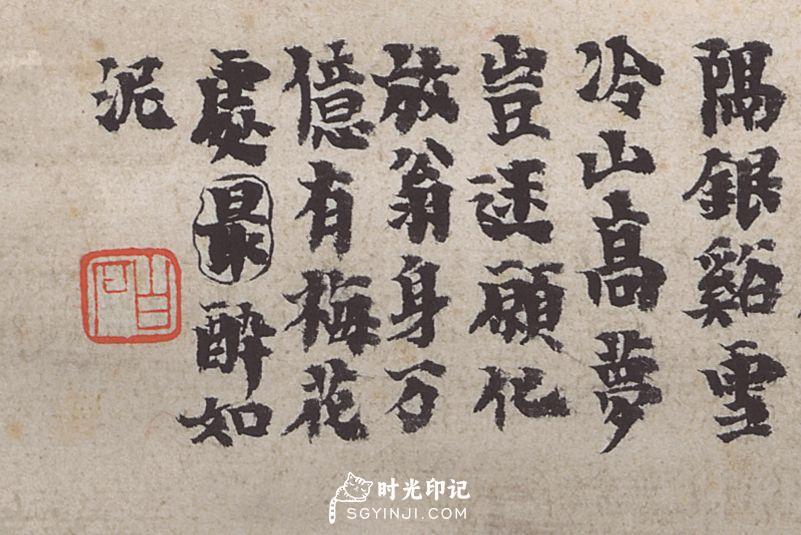 隔銀谿雪
冷山高夢
豈迷願化
放翁身万
億有梅花
處最醉如
泥
时光印记
SGYINJI.COM